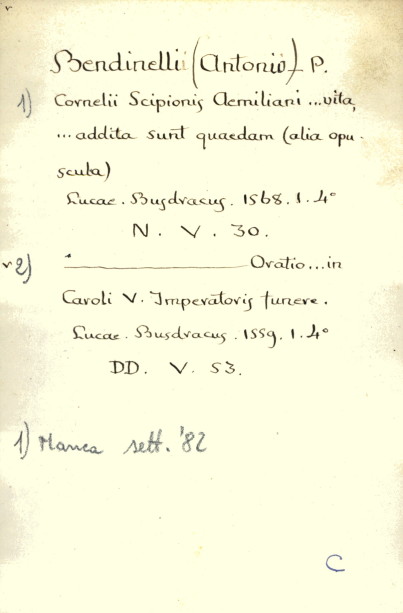 Bendinellii (Antonio) P.
1) Cornelii Scipionis Aemiliani ... vita,
... addita sunt quaedam (alia opu-
scula)
Lucae. Busdracus. 1568. 1. 4°
N. V. 30.
2) " ———— Oratio ... in
Caroli V. Imperatoris funere.
Lucae. Busdracus. 1559. 1. 4°
DD. V. 53.
1) Manca sett. '82
C